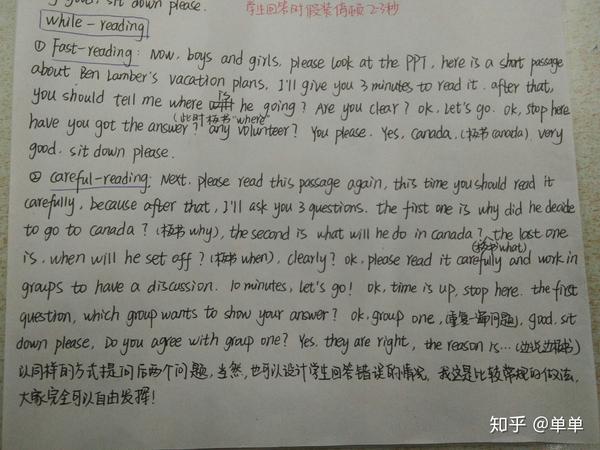 good, sit down please.
学生回答时假装停顿2-3秒
while-reading
① Fast-reading: Now, boys and girls, please look at the PPT, here is a short passage
about Ben Lamber's vacation plans, I'll give you 3 minutes to read it. after that,
you should tell me where is he going? Are you clear? ok, let's go. ok, stop here
(此时板书"where"
have you got the answer? any volunteer? You please. Yes, Canada, (板书canada) very
good. sit down please.
② careful-reading: Next, please read this passage again, this time you should read it
carefully, because after that, I'll ask you 3 questions. the first one is why did he decide
to go to canada? (板书why), the second is what will he do in canada? the last one
(板书what)
is, when will he set off? (板书when), clearly? ok, please read it carefully and work in
groups to have a discussion. 10 minutes, let's go! ok, time is up, stop here. the first
question, which group wants to show your answer? ok, group one, (重复一篇问题), good, sit
down please, Do you agree with group one? Yes, they are right, the reason is... (边说边板书)
以同样的方式提问后两个问题, 当然, 也可以设计学生回答错误的情况, 我这是比较常规的做法,
大家完全可以自由发挥!
知乎 @单单